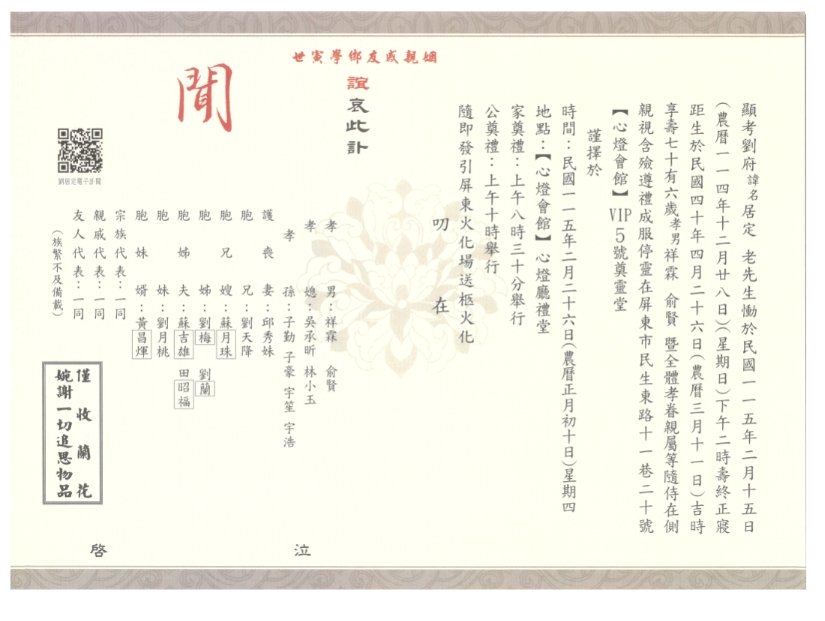 顯考劉府諱名居定 老先生慟於民國一一五年二月十五日
(農曆一一四年十二月廿八日)(星期日)下午二時壽終正寢
距生於民國四十年四月二十六日(農曆三月十一日)吉時
享壽七十有六歲孝男祥霖 俞賢 暨全體孝眷親屬等隨侍在側
親視含殮遵禮成服停靈在屏東市民生東路十一巷二十號
【心燈會館】VIP5號奠靈堂
謹擇於
時間:民國一一五年二月二十六日(農曆正月初十日)星期四
地點:【心燈會館】心燈廳禮堂
家奠禮:上午八時三十分舉行
公奠禮:上午十時舉行
隨即發引屏東火化場送柩火化
叨在
姻親戚友鄉學寅世
誼哀此訃
聞
孝男:祥霖 俞賢
孝媳:吳承昕 林小玉
孝孫:子勤 子豪 宇笙 宇浩
護喪妻:邱秀妹
胞兄:劉天降
胞兄嫂:蘇月珠
胞姊:劉梅 劉蘭
胞姊夫:蘇吉雄 田昭福
胞妹:劉月桃
胞妹婿:黃昌煇
宗族代表:一同
親戚代表:一同
友人代表:一同
(族繁不及備載)
泣啓
劉居定電子訃聞
僅收蘭花
婉謝一切追思物品